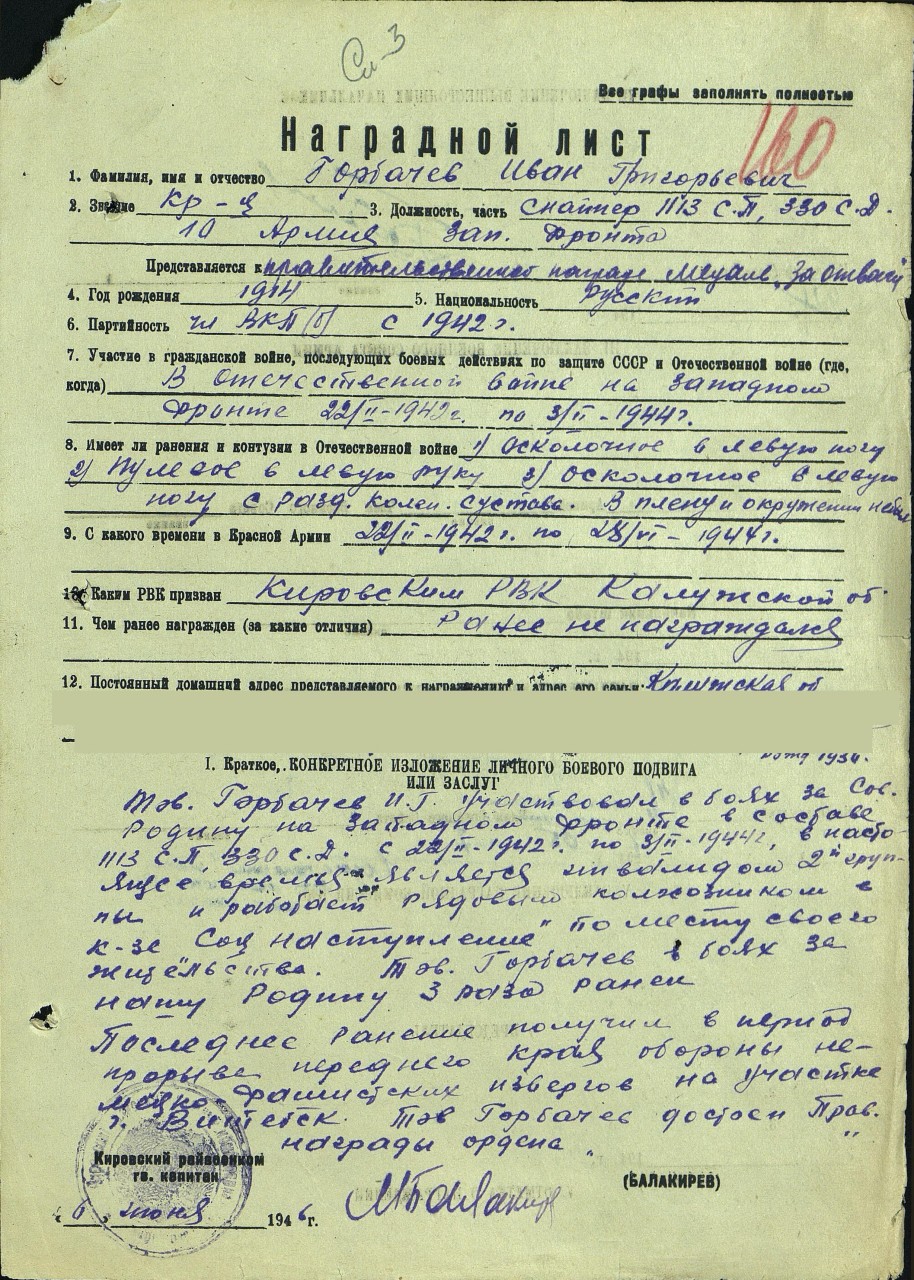 Сл-3
Все графы заполнять полностью
160
Наградной лист
1. Фамилия, имя и отчество Горбачев Иван Григорьевич
2. Звание Кр-ц 3. Должность, часть снайпер 1113 С.П, 330 С.Д.
10 Армия Зап. Фронта
Представляется к правительственной награде медаль „За отвагу
4. Год рождения 1914 5. Национальность Русский
6. Партийность чл ВКП(б) с 1942 г.
7. Участие в гражданской войне, последующих боевых действиях по защите СССР и Отечественной войне (где,
когда) В отечественной войне на Западном
Фронте 22/II-1942г. по 3/II-1944г.
8. Имеет ли ранения и контузии в Отечественной войне 1) Осколочное в левую ногу
2) Пулевое в левую руку 3) осколочное в левую
ногу с разд. колен. сустава. В плену и окружении не был
9. С какого времени в Красной Армии 22/II-1942г. по 28/VI-1944г.
10. Каким РВК призван Кировским РВК Калужской об
11. Чем ранее награжден (за какие отличия) Ранее не награждался
12. Постоянный домашний адрес представляемого к награждению и адрес его семьи: Калужская об
1934.
I. Краткое, КОНКРЕТНОЕ ИЗЛОЖЕНИЕ ЛИЧНОГО БОЕВОГО ПОДВИГА
ИЛИ ЗАСЛУГ
Тов. Горбачев И.Г. участвовал в боях за Сов.
Родину на Западном фронте в составе
1113 С.П 330 С.Д. с 22/II-1942г. по 3/II-1944г, в насто-
ящее время является инвалидом 2й груп-
пы и работает рядовым колхозником в
к-зе Соц наступление" по месту своего
жительства. Тов. Горбачев в боях за
нашу Родину 3 раза ранен
Последнее ранение получил в период
прорыва переднего края обороны не-
мецко фашистских извергов на участке
г. Витебск. Тов Горбачев достоен Прав.
награды ордена „ "
Кировский райвоенком
гв. капитан
(БАЛАКИРЕВ)
МБалакирев
„6„ июня 1946г.